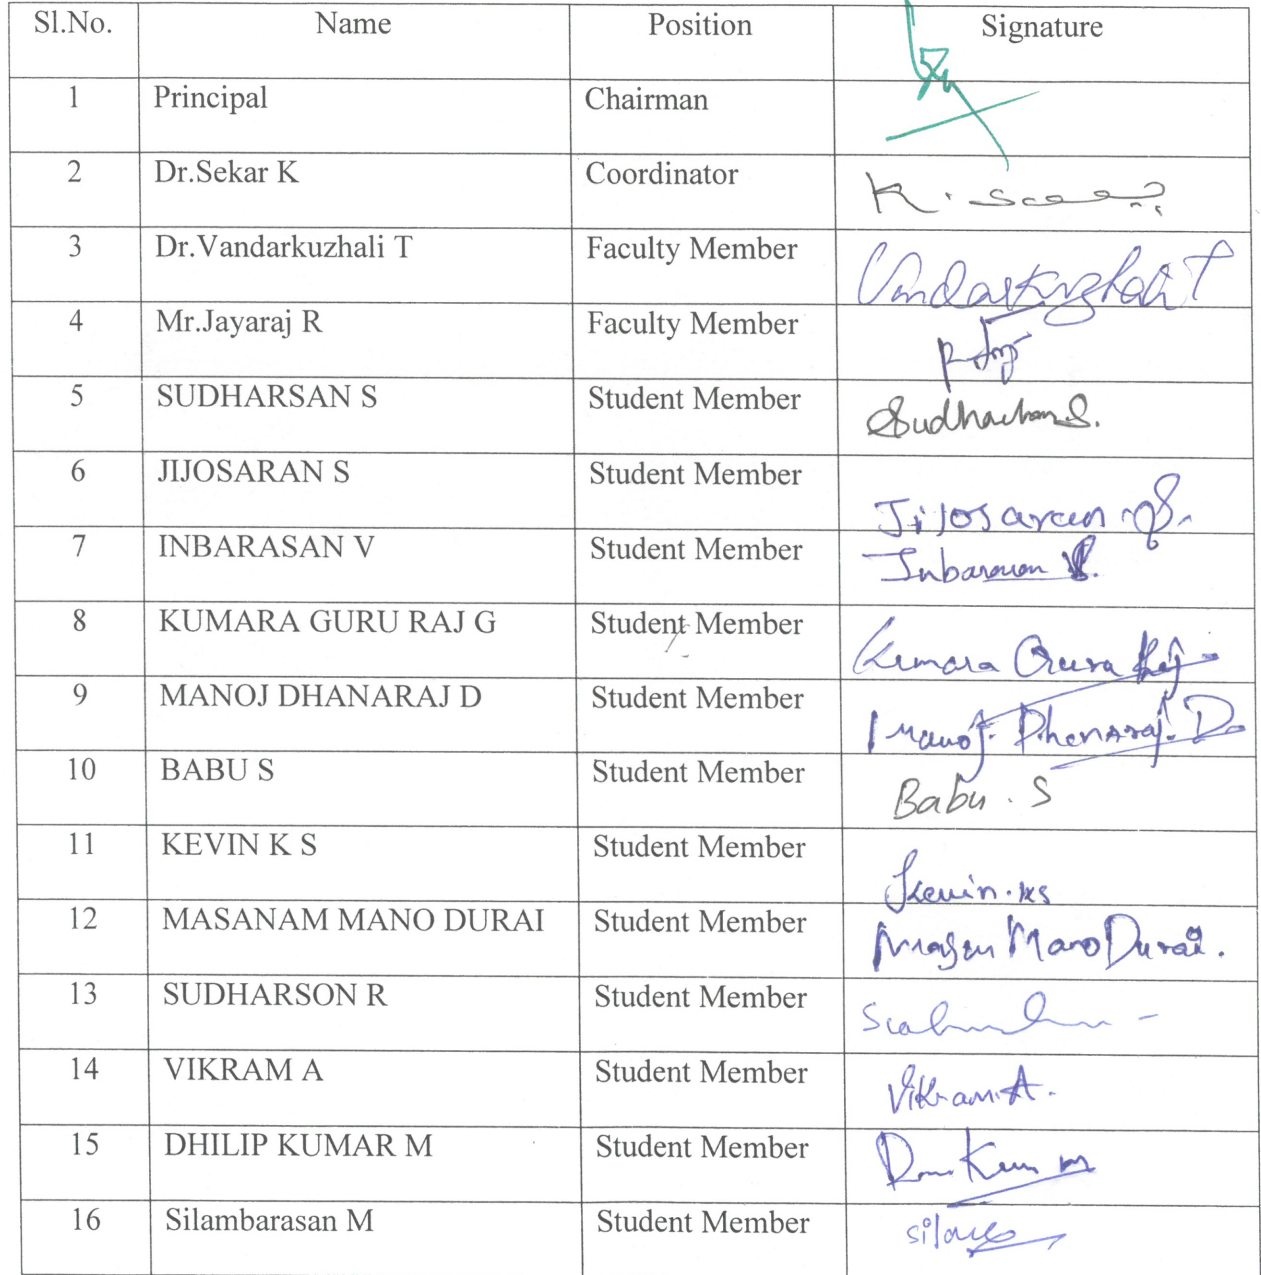 Sl.No. Name Position Signature
1 Principal Chairman
2 Dr.Sekar K Coordinator
3 Dr.Vandarkuzhali T Faculty Member Vandarkuzhali T
4 Mr.Jayaraj R Faculty Member
5 SUDHARSAN S Student Member Sudharshan S.
6 JIJOSARAN S Student Member Jijosaran S.
7 INBARASAN V Student Member Inbarasan V.
8 KUMARA GURU RAJ G Student Member Kumara Guru Raj
9 MANOJ DHANARAJ D Student Member Manoj. Dhanaraj. D
10 BABU S Student Member Babu . S
11 KEVIN K S Student Member Kevin.ks
12 MASANAM MANO DURAI Student Member Mano Durai.
13 SUDHARSON R Student Member
14 VIKRAM A Student Member Vikram.A.
15 DHILIP KUMAR M Student Member
16 Silambarasan M Student Member